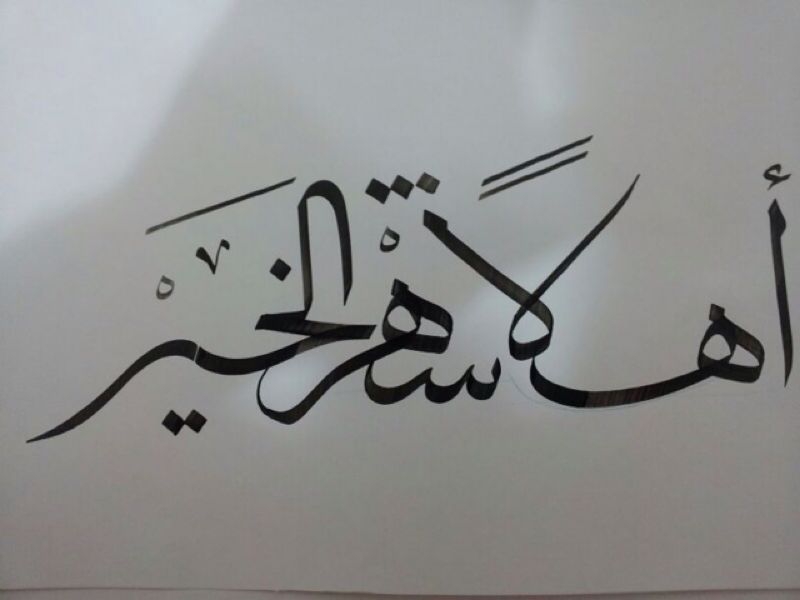 أهلاً شهر الخير